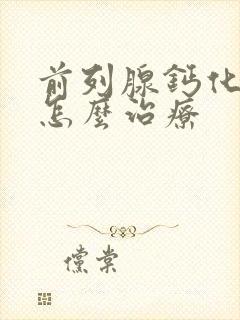 前列腺鈣化
怎麼治療
儻棠